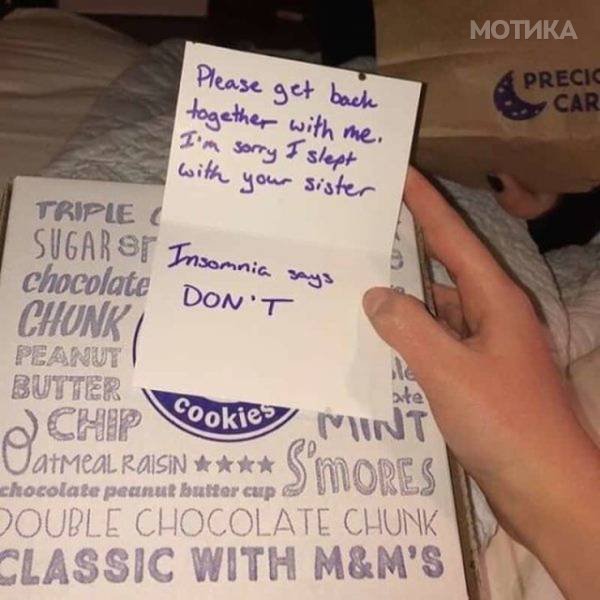 МОТИКА
PRECIC
CAR
Please get back
together with me.
I'm sorry I slept
with your sister
Insomnia says
DON'T
TRIPLE
SUGAR
chocolate
CHUNK
PEANUT
BUTTER
CHIP
Cookies
MINT
OATMEAL RAISIN ★★★★ S'MORES
chocolate peanut butter cup
DOUBLE CHOCOLATE CHUNK
CLASSIC WITH M&M'S